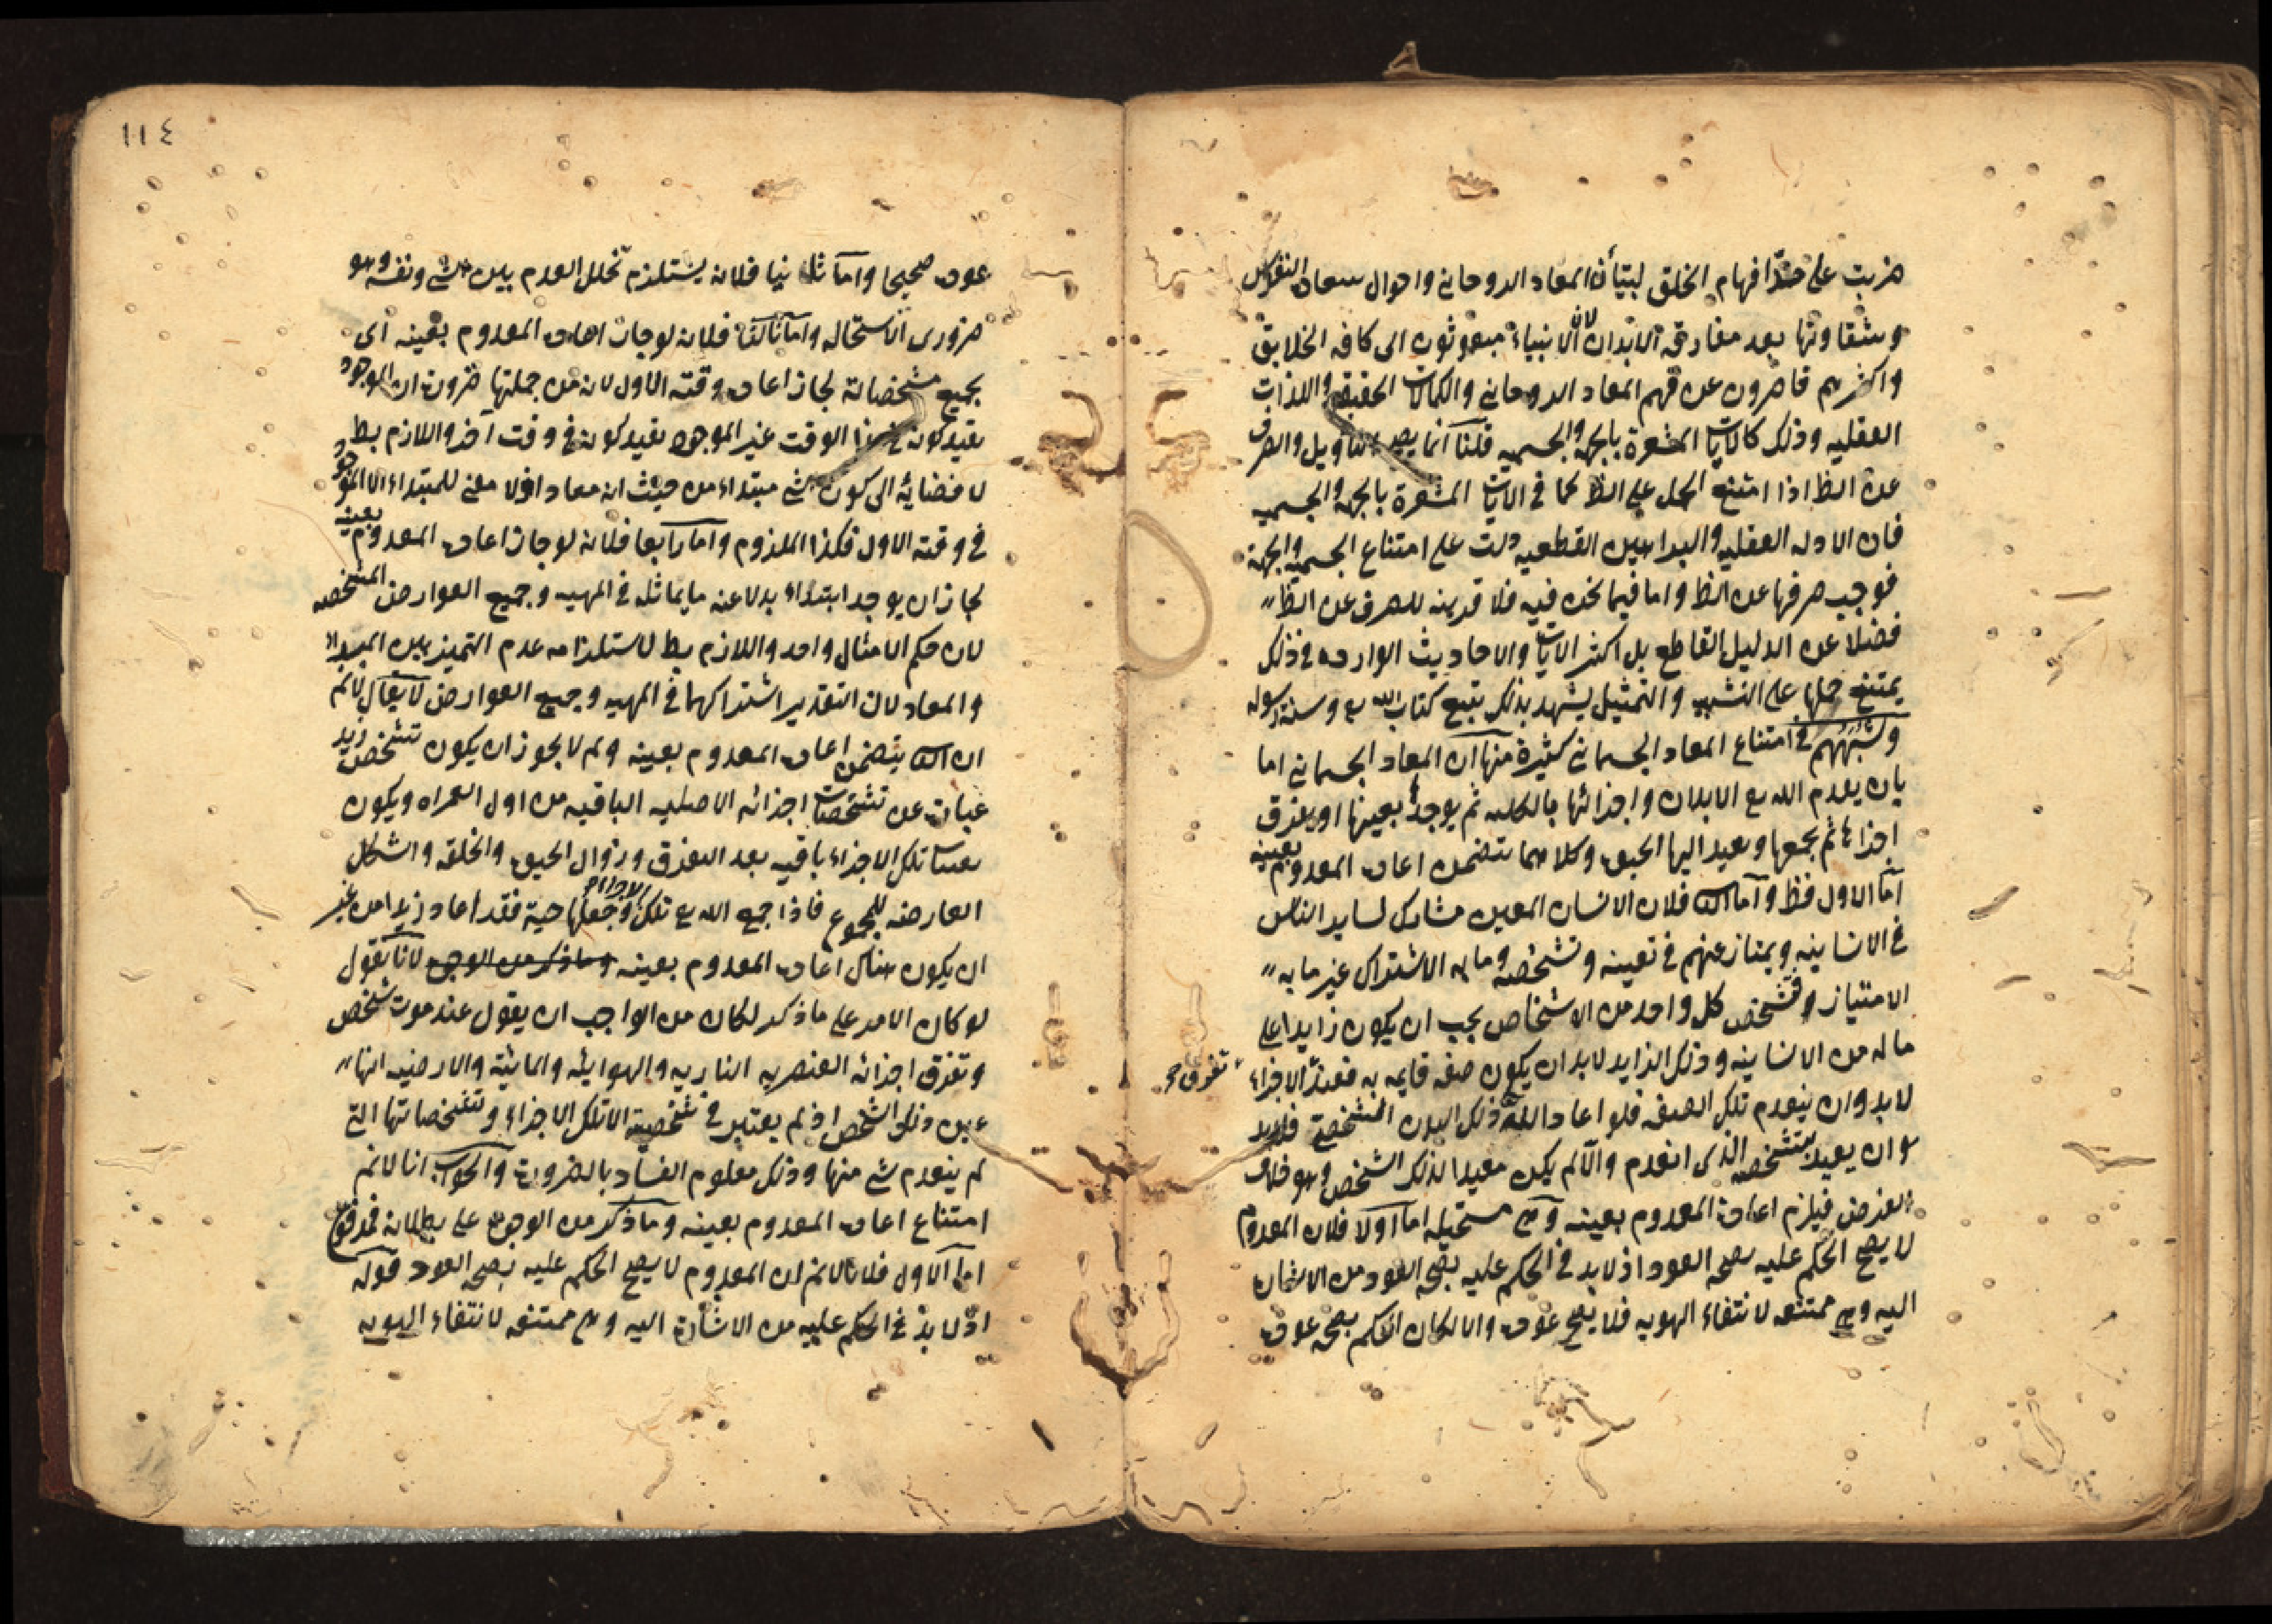 ضربت على حدّ افهام الخلق لبيان المعاد الروحاني واحوال سعادة النفوس
وشقاوتها بعد مفارقة الابدان لان الانبياء مبعوثون الى كافه الخلايق
واكثرهم قاصرون عن فهم المعاد الروحاني والكمالات الحقيقه واللذات
العقليه وذلك كالايات المشعرة بالجهه والجسميه قلنا انما يصح التاويل والصرف
عن الظ اذا امتنع الحمل على الظ كما في الايات المشعرة بالجهه والجسميه
فان الادله العقليه والبراهين القطعيه دلت على امتناع الجسميه والجهة
فوجب صرفها عن الظ واما فيما نحن فيه فلا قرينه للصرف عن الظ
فضلا عن الدليل القاطع بل اكثر الايات والاحاديث الوارده في ذلك
يمتنع حملها على التشبيه والتمثيل يشهد بذلك تتبع كتاب الله تع وسنة رسوله
وشبههم في امتناع المعاد الجسماني كثيرة منها ان المعاد الجسماني اما
بان يعدم الله تع الابدان واجزائها بالكليه ثم يوجدها بعينها او يفرق
اجزاءها ثم يجمعها ويعيد اليها الحيوة وكلاهما يتضمن اعادة المعدوم بعينه
اما الاول فظ واما الث فلان الانسان المعين مشارك لساير الناس
في الانسانيه ويمتاز عنهم في تعينه وتشخصه وما به الاشتراك غير ما به
الامتياز فتشخص كل واحد من الاشخاص يجب ان يكون زايدا على
ما له من الانسانيه وذلك الزايد لابد ان يكون صفه قايمه به فعند الاجزاء
تفرق صح
لابد وان ينعدم تلك الصفه فلو اعاد الله تع ذلك البدن المتشخص فلابد
وان يعيد بتشخصه الذي انعدم والا لم يكن معيدا لذلك الشخص وهو خلاف
الفرض فيلزم اعادة المعدوم بعينه وهى مستحيله اما اولا فلان المعدوم
لا يصح الحكم عليه بصحه العود اذ لابد في الحكم عليه بصحه العود من الاشارة
اليه وهى ممتنعه لانتفاء الهويه فلا يصح عوده والا لكان الحكم بصحه عوده
١١٤
عوده صحيحا واما ثانيا فلانه يستلزم تخلل العدم بين الشي ونفسه وهو
ضروري الاستحاله واما ثالثا فلانه لو جاز اعادة المعدوم بعينه اى
بجميع مشخصاته لجاز اعادة وقته الاول لانه من جملتها ضرورة ان الموجود
بقيد كونه في هذا الوقت غير الموجود بقيد كونه في وقت آخر واللازم بط
لافضائه الى كون شي مبتداء من حيث انه معاد اذ لا معنى للمبتداء الا الموجود
في وقته الاول فكذا الملزوم واما رابعا فلانه لو جاز اعادة المعدوم بعينه
لجاز ان يوجد ابتداء بدلا عنه ما يماثله في المهيه وجميع العوارض المشخصه
لان حكم الامثال واحد واللازم بط لاستلزامه عدم التميز بين المبتداء
والمعاد لان التقدير اشتراكهما في المهيه وجميع العوارض لا يقال لانم
ان الث يتضمن اعادة المعدوم بعينه ولم لا يجوز ان يكون تشخص زيد
عبارة عن تشخصات اجزائه الاصليه الباقيه من اول العمر اه ويكون
تلك الاجزاء باقيه بعد التفرق وزوال الحيوة والخلقه والشكل
العارضه للمجموع فاذا جمع الله تع تلك الاجزاء وجعلها حية فقد اعاد زيدا من غير
ان يكون هناك اعادة المعدوم بعينه وما ذكر من الوجوه لانا نقول
لو كان الامر على ما ذكر لكان من الواجب ان يقول عند موت شخص
وتفرق اجزائه العنصريه الناريه والهوايئه والمايئة والارضيه انها
عين ذلك الشخص اذ لم يعتبر في شخصيته الا تلك الاجزاء وتشخصاتها التي
لم ينعدم شي منها وذلك معلوم الفساد بالضرورة والجواب انا لانم
امتناع اعادة المعدوم بعينه وما ذكر من الوجوه على بطلانه فمدفوع
اما الاول فلانا لانم ان المعدوم لا يصح الحكم عليه بصحه العود قوله
اذ لابد في الحكم عليه من الاشارة اليه وهى ممتنعه لانتفاء الهويه